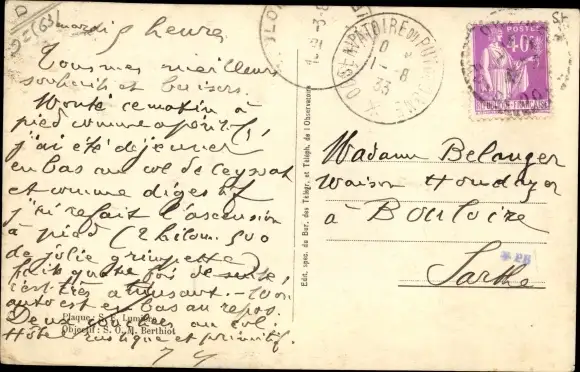 D
2=(63)
mardi 5 heures
Tous mes meilleurs
souhaits et baisers.
Monté ce matin à
pied comme apéritif,
j'ai été déjeuner
en bas au col de Ceyssat
et comme digestif
j'ai refait l'ascension
à pied (2 kilom. 500
de jolie grimpette)
fois de
c'est très amusant.
auto est en bas au repos.
Deux au col.
Hôtel rustique et primitif.
Plaque : S. E. Lumière
Objectif : S. O. M. Berthiot
Edit. spéc. du Bur. des Télégr. et Téléph. de l'Observatoire
OBSERVATOIRE DU PUY DE DOME
1-8
33
POSTES
40c
Madame Belanger
Maison Houdayer
à Bouloire
Sarthe